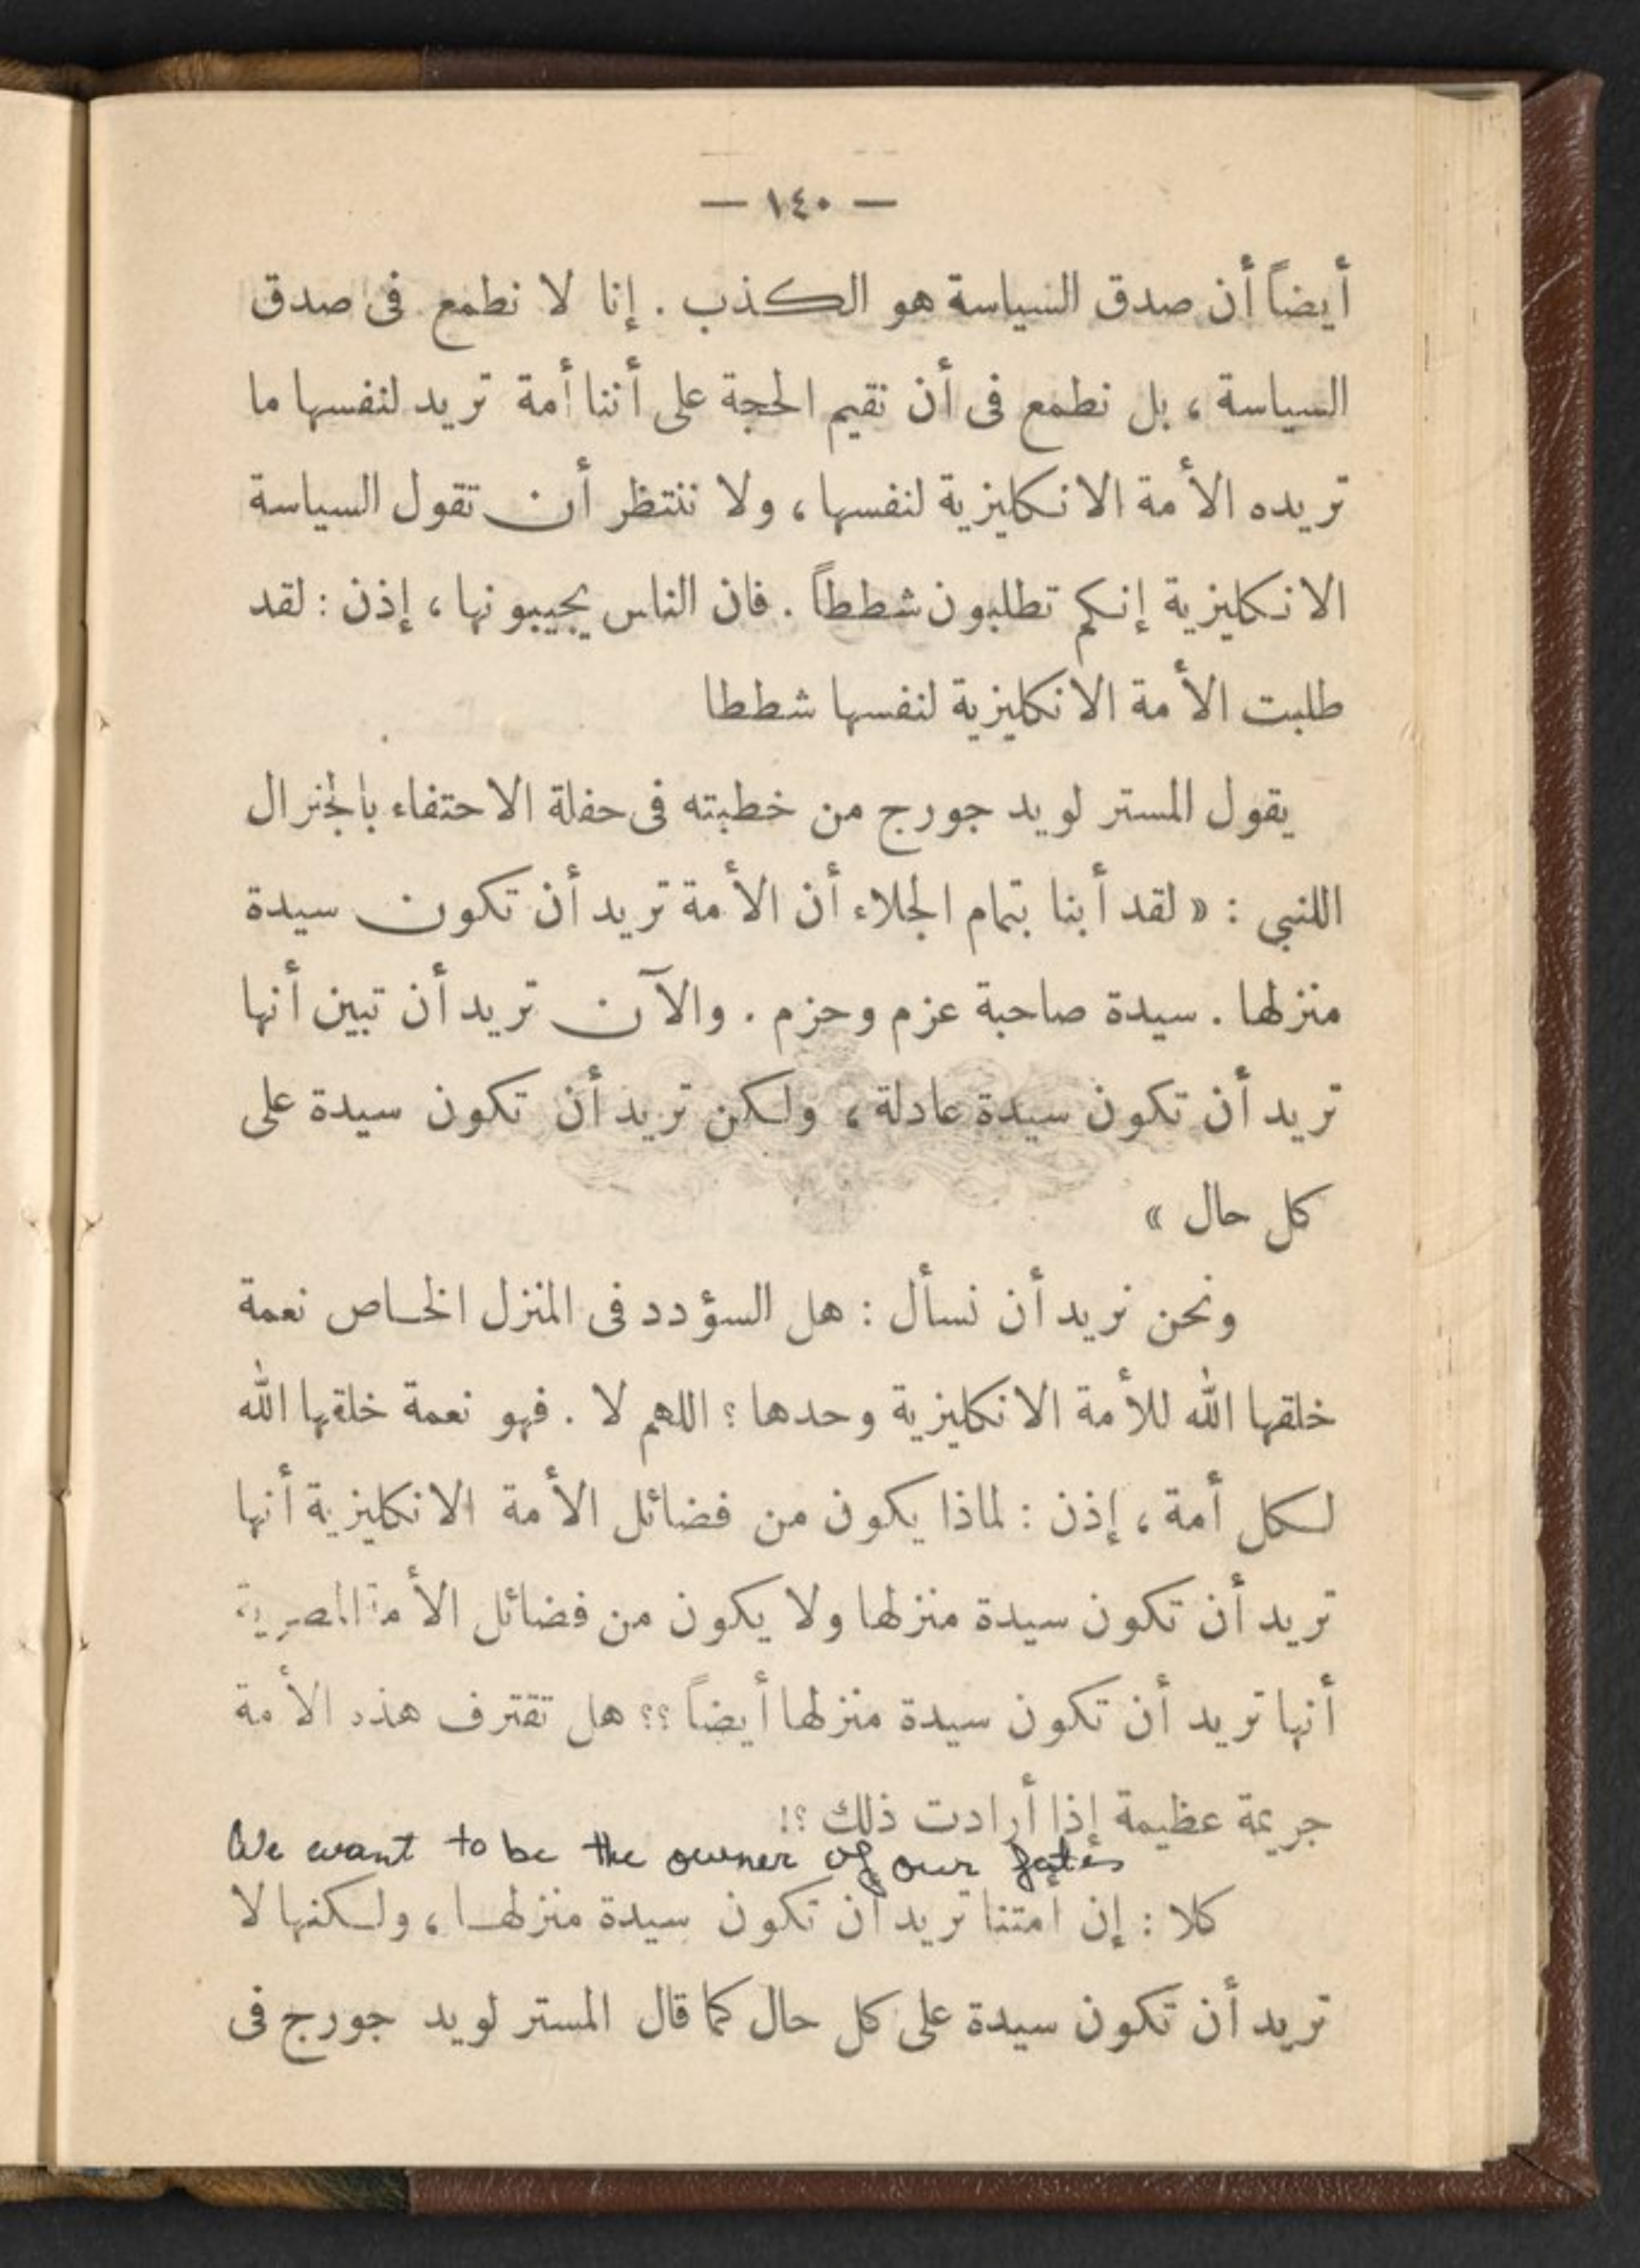 — ١٤٠ —
أيضاً أن صدق السياسة هو الكذب . إنا لا نطمع فى صدق
السياسة ، بل نطمع فى أن نقيم الحجة على أننا أمة تريد لنفسها ما
تريده الأمة الانكليزية لنفسها ، ولا ننتظر أن تقول السياسة
الانكليزية إنكم تطلبون شططاً . فان الناس يجيبونها ، إذن : لقد
طلبت الأمة الانكليزية لنفسها شططا
يقول المستر لويد جورج من خطبته فى حفلة الاحتفاء بالجنرال
اللنبي : « لقد أبنا بتمام الجلاء أن الأمة تريد أن تكون سيدة
منزلها . سيدة صاحبة عزم وحزم . والآن تريد أن تبين أنها
تريد أن تكون سيدة عادلة ، ولكن تريد أن تكون سيدة على
كل حال »
ونحن نريد أن نسأل : هل السؤدد فى المنزل الخاص نعمة
خلقها الله للأمة الانكليزية وحدها ؟ اللهم لا . فهو نعمة خلقها الله
لكل أمة ، إذن : لماذا يكون من فضائل الأمة الانكليزية أنها
تريد أن تكون سيدة منزلها ولا يكون من فضائل الأمة المصرية
أنها تريد أن تكون سيدة منزلها أيضاً ؟؟ هل تقترف هذه الأمة
جريمة عظيمة إذا أرادت ذلك ؟!
We want to be the owner of our fates
كلا : إن أمتنا تريد أن تكون سيدة منزلها ، ولكنها لا
تريد أن تكون سيدة على كل حال كما قال المستر لويد جورج فى